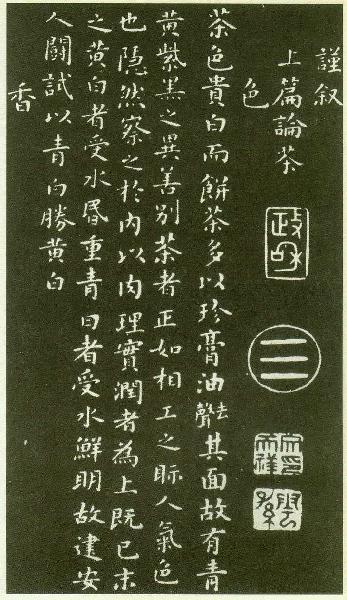 謹叙
上篇論茶
色
政和
三
茶色貴白而餅茶多以珍膏油去聲其面故有青
黃紫黑之異善別茶者正如相工之眎人氣色
也隱然察之於內以肉理實潤者為上既已末
之黃白者受水昏重青白者受水鮮明故建安
人鬭試以青白勝黃白
香